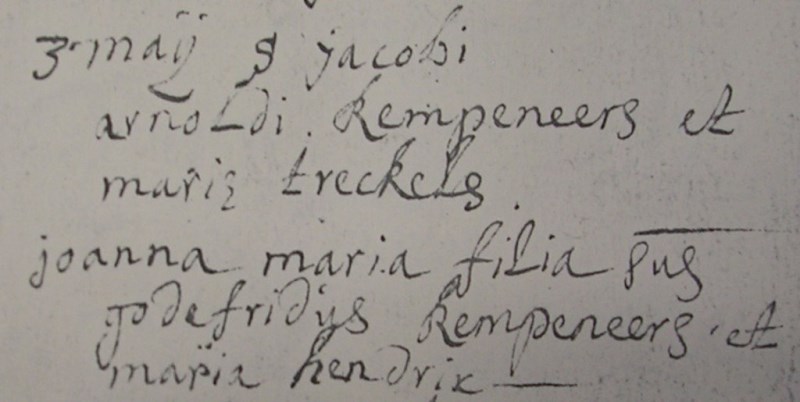 3 maij S jacobi
arnoldi kempeneers et
marię treckels
joanna maria filia sus
godefridus kempeneers et
maria hendrix